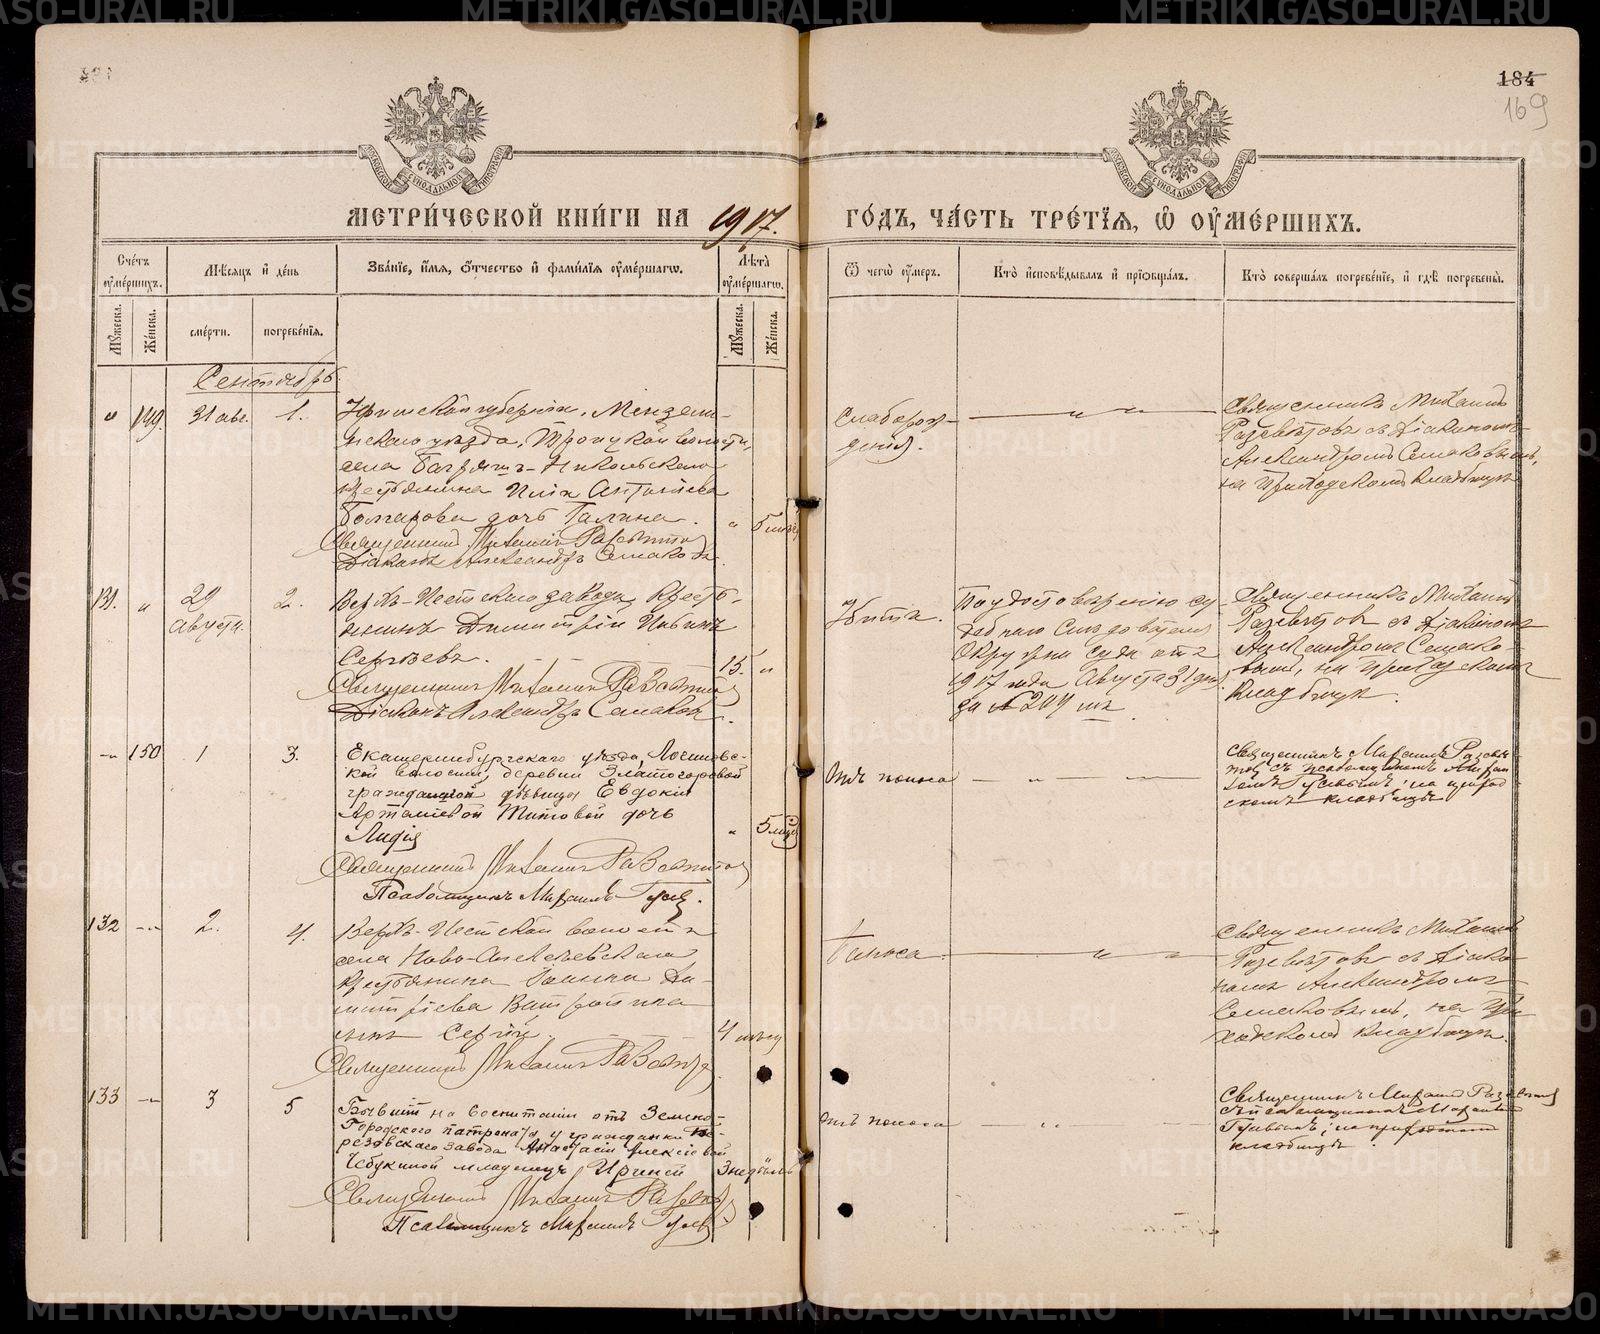 184
169
МЕТРИ́ЧЕСКОЙ КНИ́ГИ НА 1917.
ГО́ДЪ, ЧА́СТЬ ТРЕ́ТІѦ, Ѽ ОУ҆МЕ́РШИХЪ.
Сче́тъ оу҆ме́ршихъ.
Мꙋжеска.
Же́нска.
Мѣ́сѧцъ и҆ де́нь
сме́рти.
погребе́нїѧ.
Зва́нїе, и҆́мѧ, ѻ҆́тчество и҆ фами́лїѧ оу҆ме́ршагѡ.
Лѣ́та оу҆ме́ршагѡ.
Мꙋжеска.
Же́нска.
Ѿ чегѡ̀ оу҆́меръ.
Кто̀ и҆сповѣ́дывалъ и҆ прїѻбща́лъ.
Кто̀ соверша́лъ погребе́нїе, и҆ гдѣ̀ погребены̀.
Сентябрь.
" 149. 31 авг. 1.
Уфимской губерніи, Мензели-
нскаго уѣзда, Троицкой волости,
села Багряшъ-Никольскаго
крестьянина Иліи Антоніева
Болгарова дочь Галина. " 5 мѣс
Священникъ Михаилъ Развѣтовъ
Діаконъ Александръ Семаковъ
Слаборож-
денія.
— " " —
Священникъ Михаилъ
Развѣтовъ съ діакономъ
Александромъ Семаковымъ,
на приходскомъ кладбищѣ
131. " 29 августа. 2.
Верхъ-Исетскаго завода крестья-
нинъ Димитрій Ивинъ
Сергѣевъ. 15. "
Священникъ Михаилъ Развѣтовъ
Діаконъ Александръ Семаковъ.
Убитъ.
По удостовѣренію су-
дебнаго слѣдователя
Окружн. суда отъ
1917 года Августа 31 дня
за № 204
Священникъ Михаилъ
Развѣтовъ съ діакономъ
Александромъ Семако-
вымъ, на приходскомъ
кладбищѣ.
" 150 1 3.
Екатеринбургскаго уѣзда, Логиновс-
кой волости, деревни Златогоровой
гражданкой дѣвицы Евдокіи
Артаміевой Титовой дочь
Лидія " 5 мѣс
Священникъ Михаилъ Развѣтовъ
Псаломщикъ Михаилъ Гусевъ.
отъ поноса
— " —
Священникъ Михаилъ Развѣ-
товъ съ псаломщикомъ Михаи-
ломъ Гусевымъ; на приход-
скомъ кладбищѣ
132 " 2. 4.
Верхъ-Исетской волости
села Ново-Алексѣевскаго
крестьянина Іоанна Ди-
митріева Ватропина
сынъ Сергій. 4 мѣсяц
Священникъ Михаилъ Развѣтовъ
Поноса
— " " —
Священникъ Михаилъ
Развѣтовъ съ діако-
номъ Александромъ
Семаковымъ, на при-
ходскомъ кладбищѣ.
133 " 3 5
Бывшій на воспитаніи отъ Земско-
Городского патроната у гражданки Бе-
резовскаго завода Анастасіи Алексіевой
Чебукиной младенецъ Ириней 3 недѣль
Священникъ Михаилъ Развѣтовъ
Псаломщикъ Михаилъ Гусевъ
отъ поноса
— " —
Священникъ Михаилъ Развѣтовъ
съ псаломщикомъ Михаиломъ
Гусевымъ; на приходскомъ
кладбищѣ.
METRIKI.GASO-URAL.RU